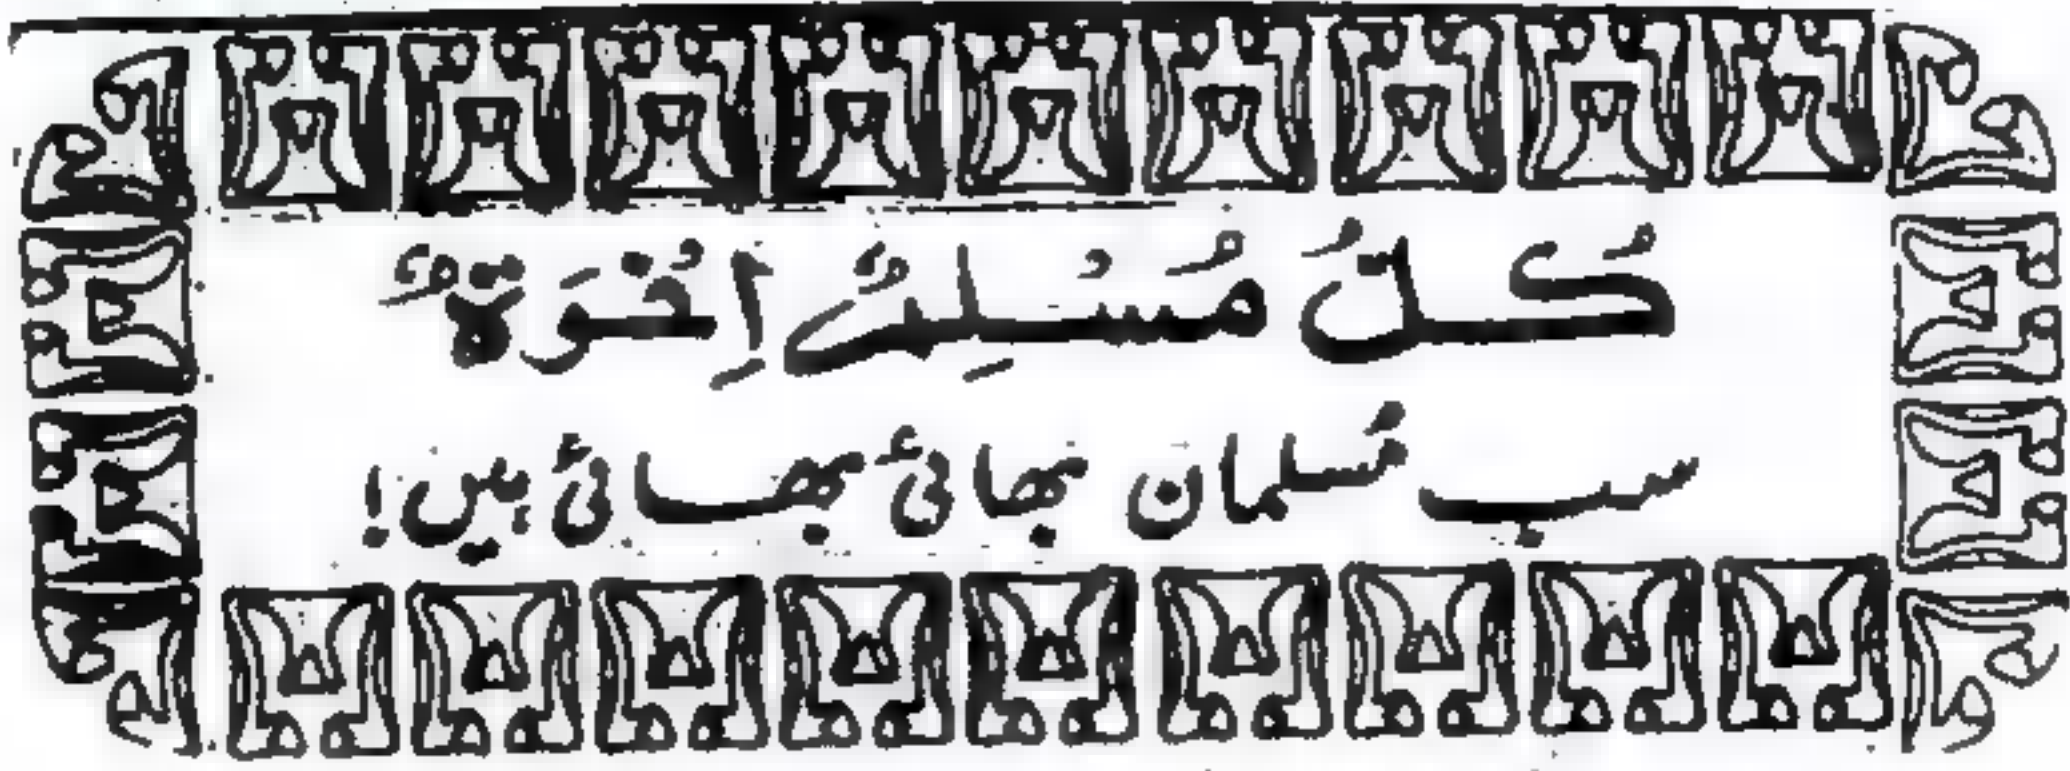 كُلُّ مُسْلِمٌ اِخْوَةٌ
سب مُسلمان بھائی بھائی ہیں!